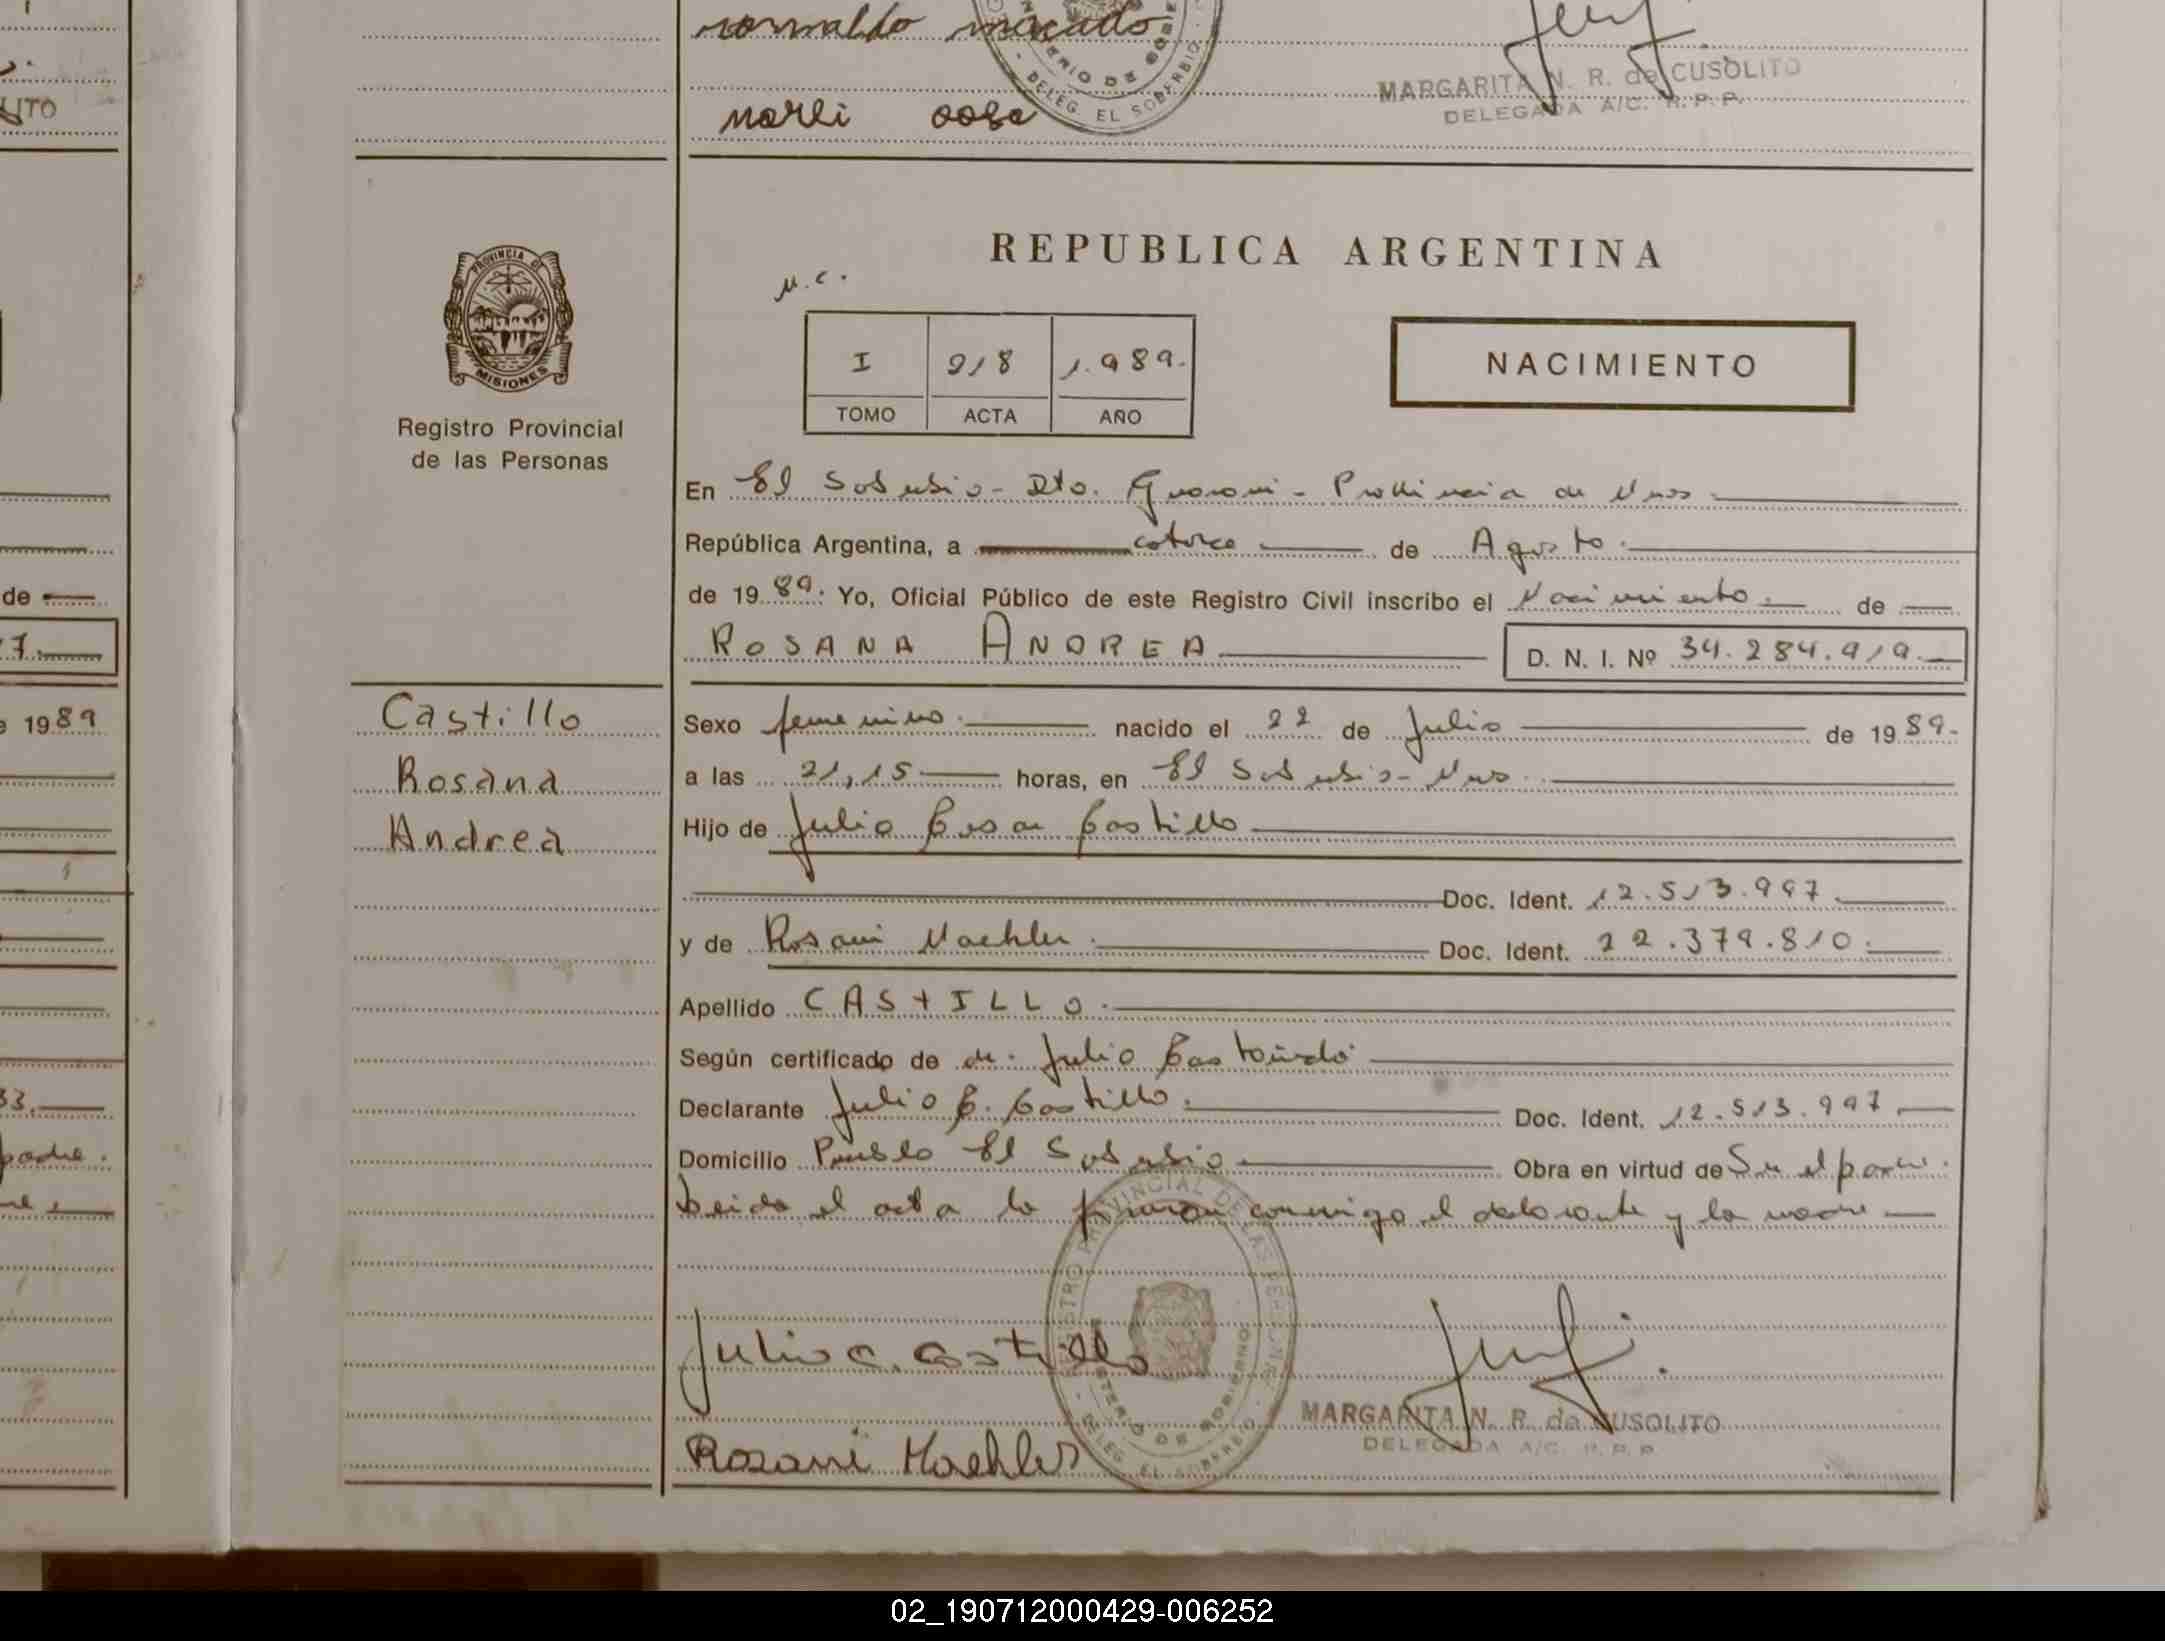 ronaldo macado
MARGARITA N. R. de CUSOLITO
DELEGADA A/C. R. P. P.
DELEG. EL SOBERBIO
marli
REPUBLICA ARGENTINA
PROVINCIA DE
MISIONES
Registro Provincial
de las Personas
I 218 1.989.
TOMO ACTA AÑO
NACIMIENTO
En El Soberbio - Dto. Guarani - Provincia de Mnes
República Argentina, a catorce de Agosto.
de 19 89. Yo, Oficial Público de este Registro Civil inscribo el Nacimiento de
ROSANA ANDREA D. N. I. Nº 34.284.919.
Castillo
Rosana
Andrea
Sexo femenino. nacido el 22 de Julio de 19 89.
a las 21,15 horas, en El Soberbio - Mnes.
Hijo de Julio Cesar Castillo
Doc. Ident. 12.513.997
y de Rosani Maehler. Doc. Ident. 22.379.810.
Apellido CASTILLO.
Según certificado de dr. Julio
Declarante Julio C. Castillo. Doc. Ident. 12.513.997
Domicilio Pueblo El Soberbio Obra en virtud de Ser el padre.
Leida el acta la firman conmigo el declarante y la madre
REGISTRO PROVINCIAL DE LAS PERSONAS
MINISTERIO DE GOBIERNO
DELEG. EL SOBERBIO
Julio C. Castillo
MARGARITA N. R. de CUSOLITO
DELEGADA A/C. R. P. P.
Rosani Maehler
02_190712000429-006252